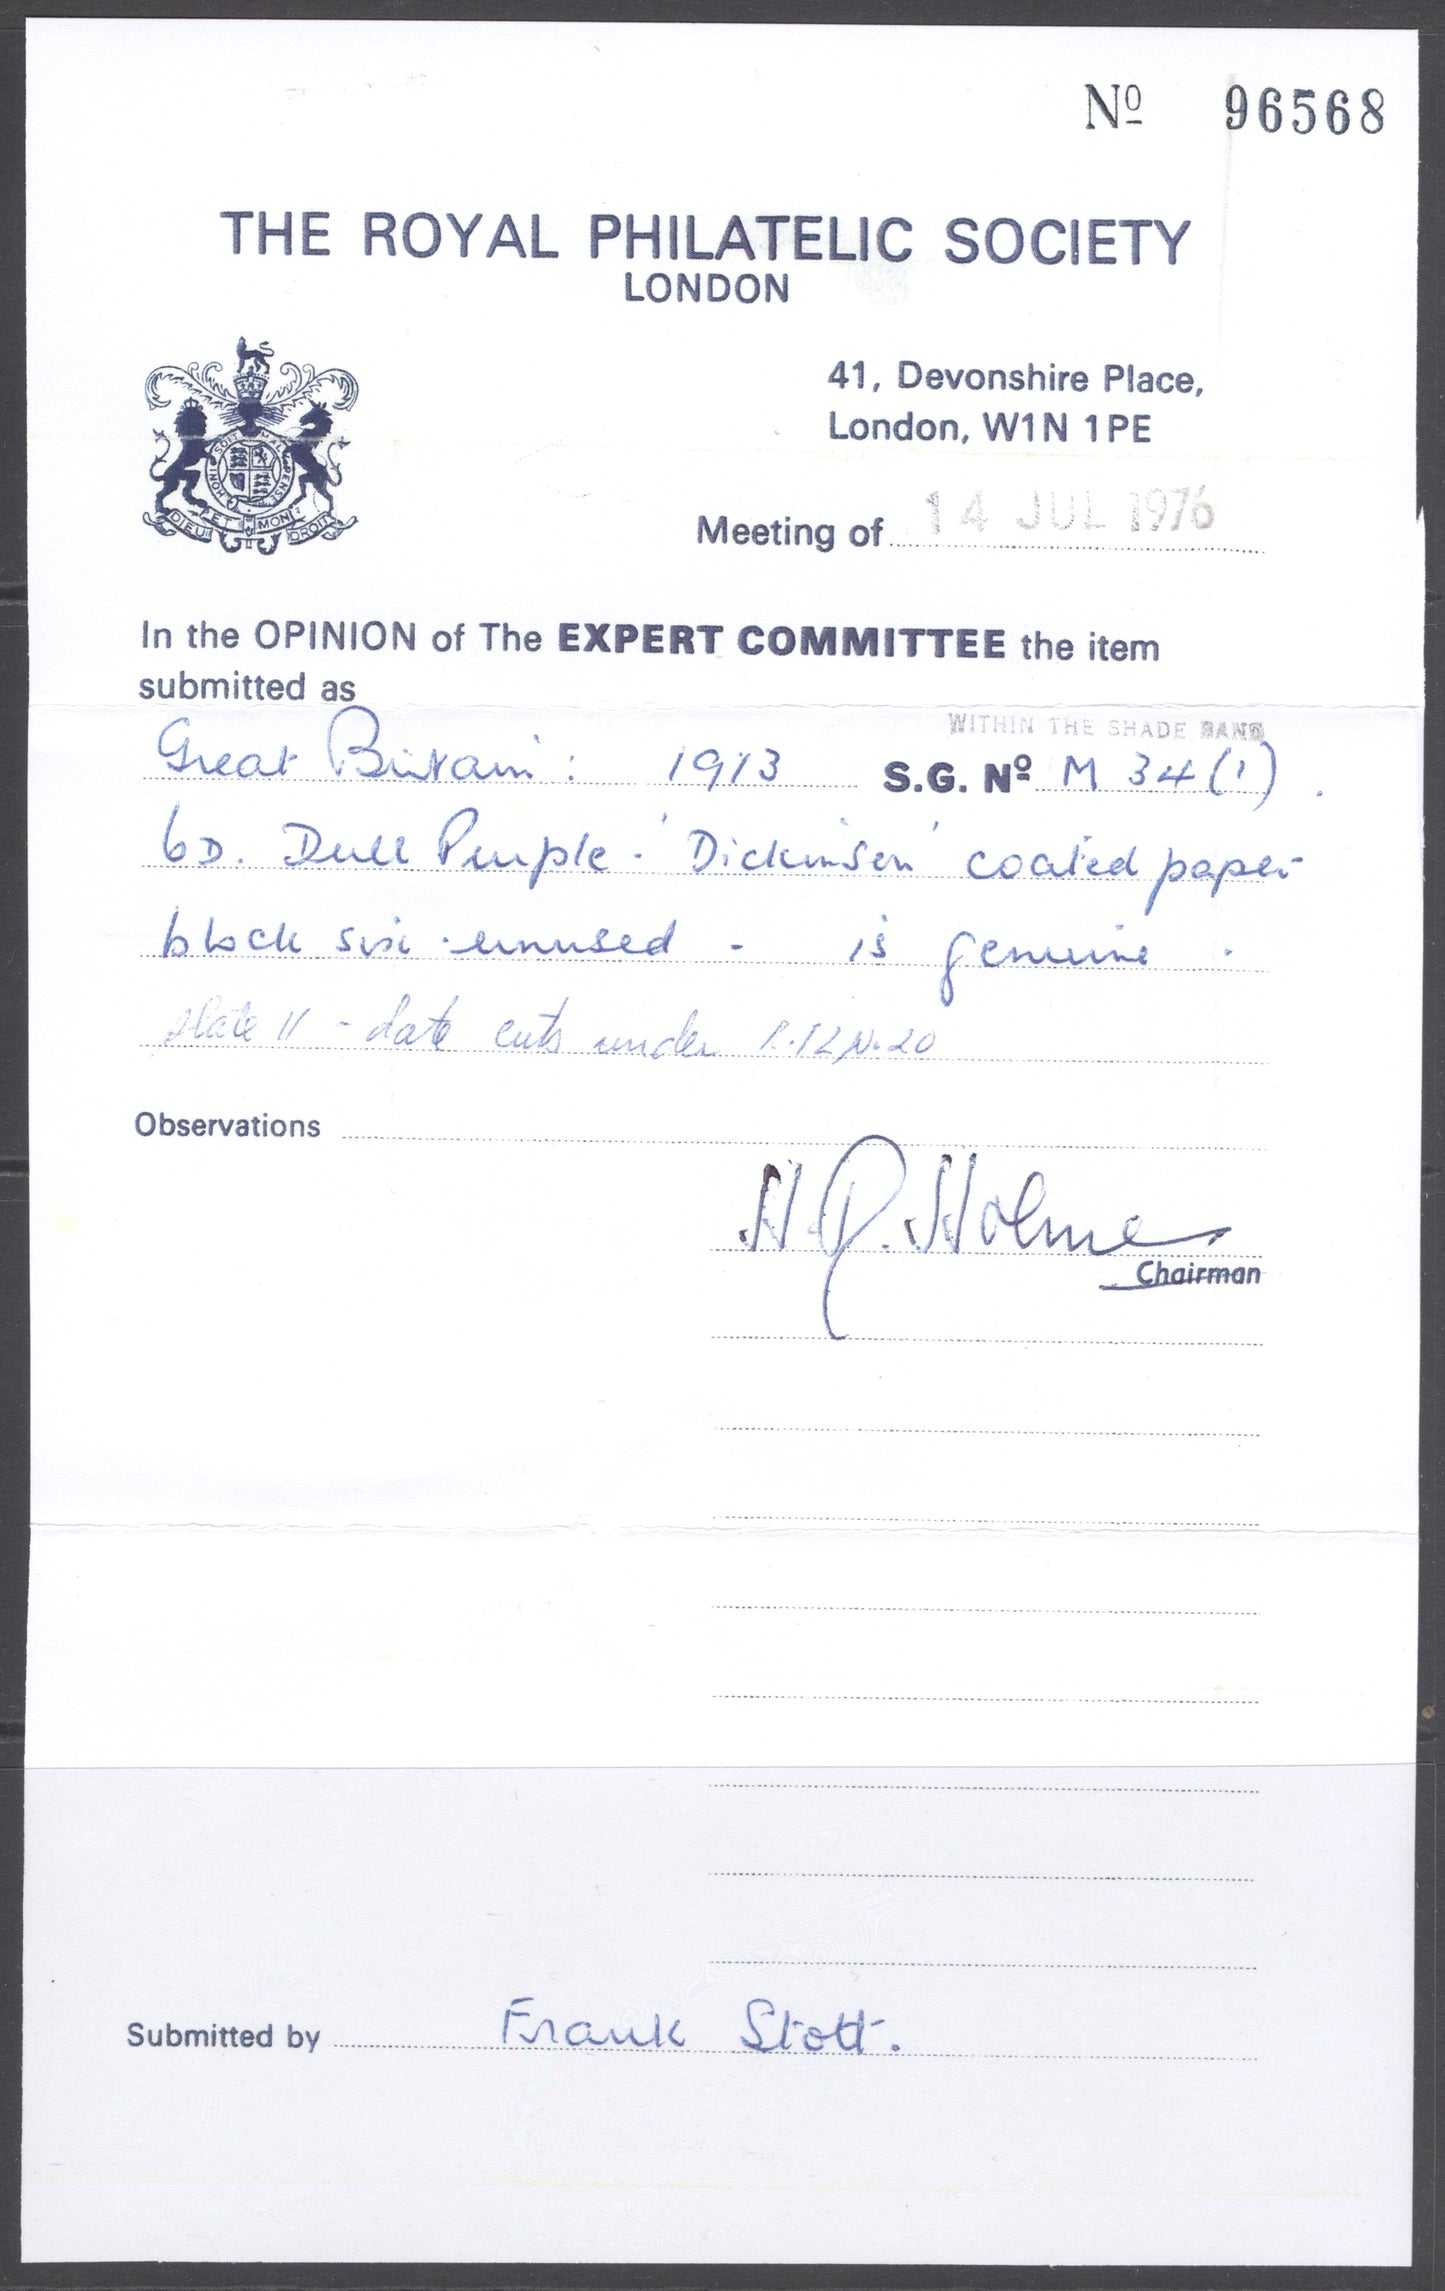 Nº 96568
THE ROYAL PHILATELIC SOCIETY
LONDON
41, Devonshire Place,
London, W1N 1PE
HONI SOIT MAL PENSE
DIEU ET MON DROIT
Meeting of 14 JUL 1976
In the OPINION of The EXPERT COMMITTEE the item
submitted as
WITHIN THE SHADE BAND
Great Britain: 1913 S.G. Nº M 34 (1).
6D. Dull Purple - 'Dickinson' coated paper
block six - unused - is genuine.
plate 11 - date cuts under R.12 N. 20
Observations
H. R. Holmes
Chairman
Submitted by Frank Stott.